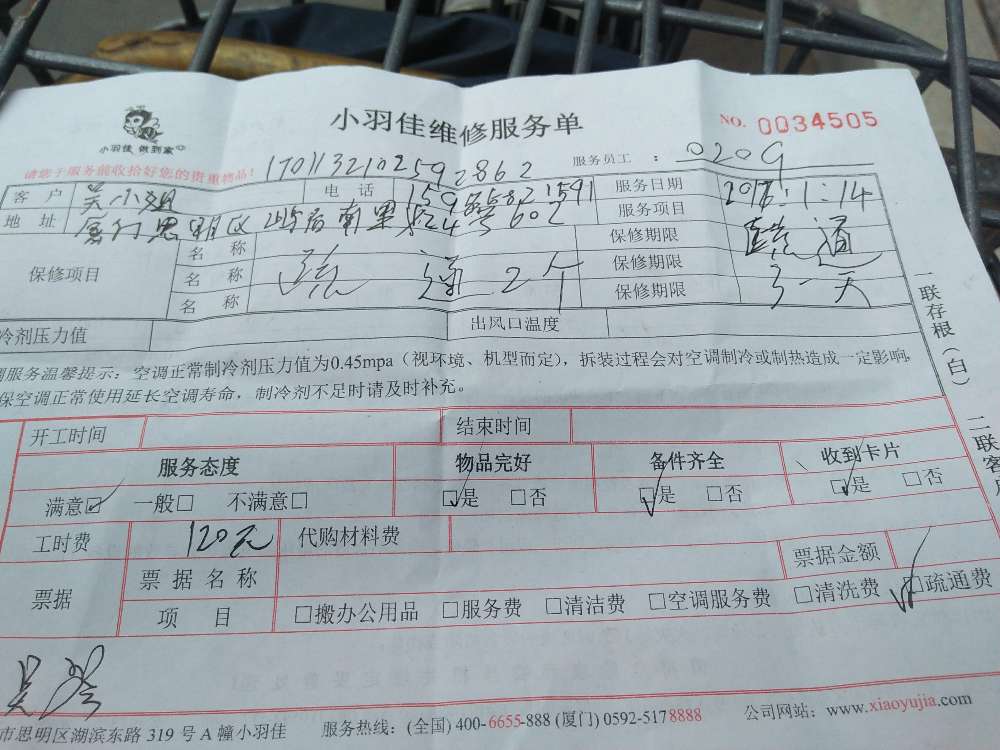 小羽佳维修服务单
NO. 0034505
小羽佳 做到家
请您于服务前收拾好您的贵重物品!
17011321025928 62
服务员工 : 0209
客户 吴小姐 电话 服务日期 1:14
地址 厦门思明区 南 602 服务项目 疏通
保修项目 名称 疏通2个 保修期限
名称 保修期限 天
名称 保修期限
冷剂压力值 出风口温度
调服务温馨提示:空调正常制冷剂压力值为0.45mpa(视环境、机型而定),拆装过程会对空调制冷或制热造成一定影响,
保空调正常使用延长空调寿命,制冷剂不足时请及时补充。
开工时间 结束时间
服务态度 物品完好 备件齐全 收到卡片
满意☑ 一般□ 不满意□ ☑是 □否 ☑是 □否 ☑是 □否
工时费 120元 代购材料费
票据 票据名称 票据金额
项目 □搬办公用品 □服务费 □清洁费 □空调服务费 □清洗费 ☑疏通费
市思明区湖滨东路 319 号 A 幢小羽佳 服务热线:(全国) 400-6655-888 (厦门) 0592-5178888 公司网站:www.xiaoyujia.com
一联存根(白) 二联客